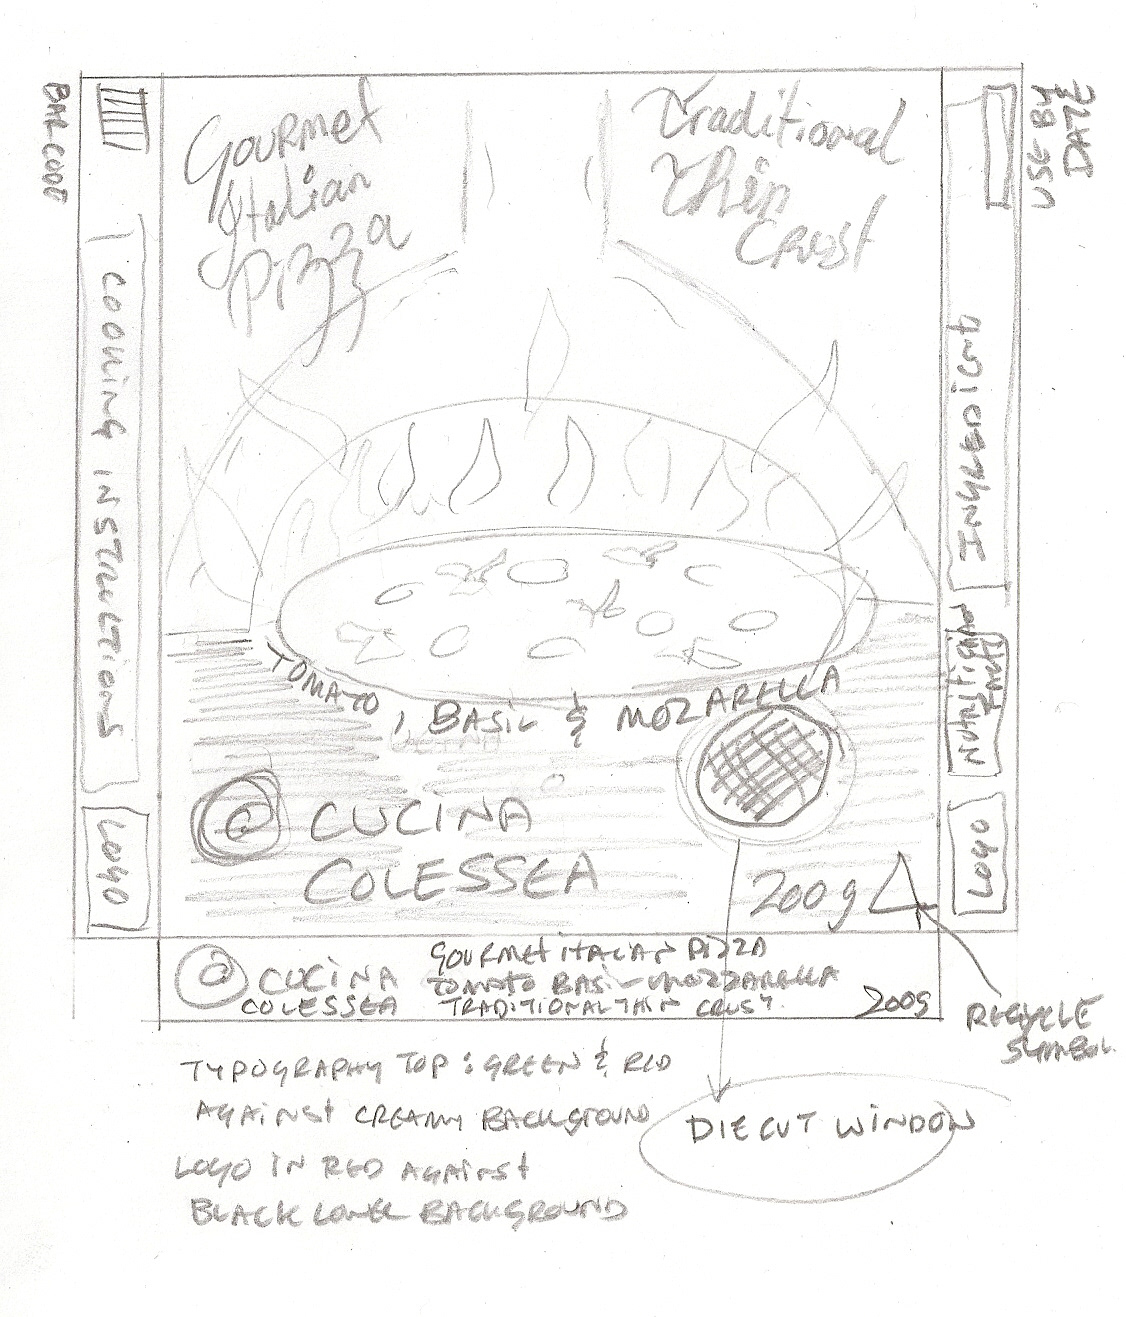 BARCODE
Gourmet
Italian
Pizza
Traditional
Thin
CRUST
USE BY
DATE
COOKING INSTRUCTIONS
INGREDIENTS
NUTRITIONAL
LOGO
LOGO
TOMATO, BASIL & MOZARELLA
@ CUCINA
COLESSEA
200g
@ CUCINA
COLESSEA
GOURMET ITALIAN PIZZA
TOMATO BASIL MOZZARELLA
TRADITIONAL THIN CRUST.
200g
RECYCLE
SYMBOL.
TYPOGRAPHY TOP : GREEN & RED
AGAINST CREAMY BACKGROUND
LOGO IN RED AGAINST
BLACK LOWER BACKGROUND
DIE CUT WINDOW